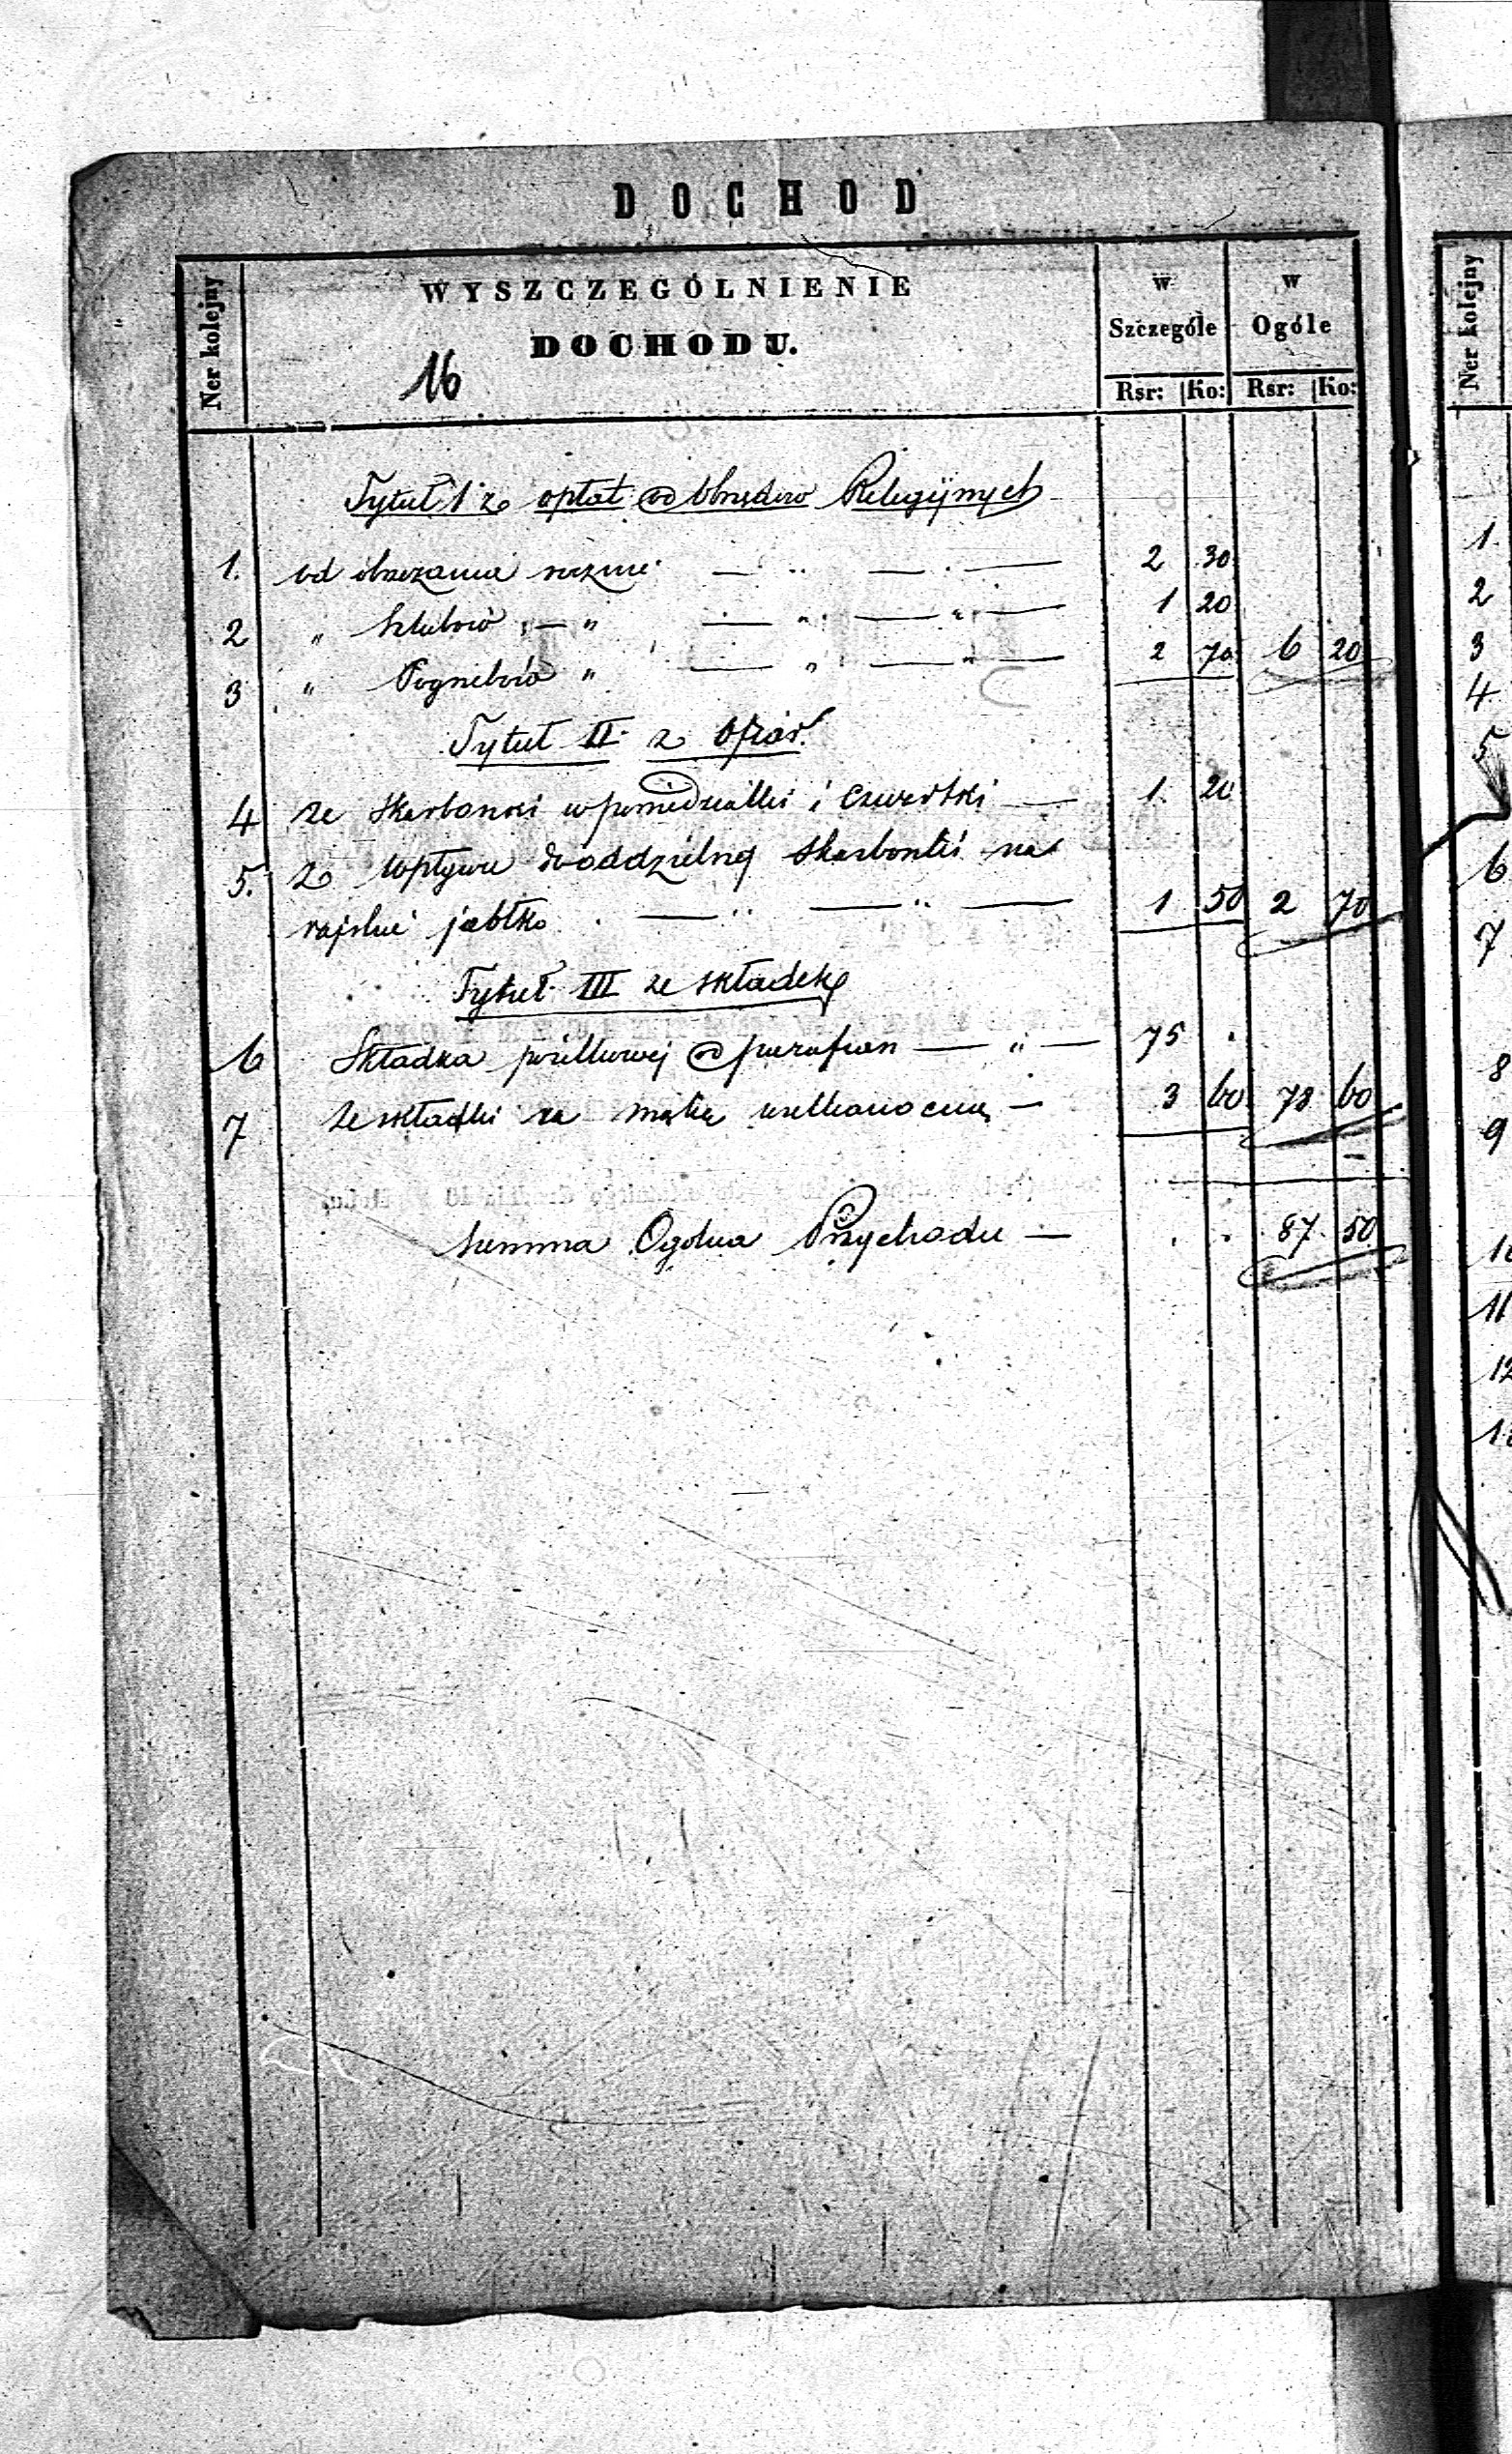 DOCHOD
Ner kolejny
WYSZCZEGÓLNIENIE
DOCHODU.
w Szczególe
w Ogóle
Rsr: Ko: Rsr: Ko:
16
Tytuł 1 z opłat od Obrzędów Religijnych
1. od obrzezania rocznie 2 30
2 „ Szlubów — „ 1 20
3 „ Pogrzebów „ 2 70 6 20
Tytuł II z Ofiar.
4 ze Skarbonki w poniedziałki i Czwartki — 1 20
5. z Wpływu oddzielnej Skarbonki na
rajskie jabłko 1 50 2 70
Tytuł III ze składek
6 Składka od parafian — „ — 75 .
7 Ze składki na mąkę wielkanocną — 3 60 78 60
Summa Ogólna Przychodu — . . 87 50
Ner kolejny
1.
2
3
4.
5
6
7
8
9
11
12